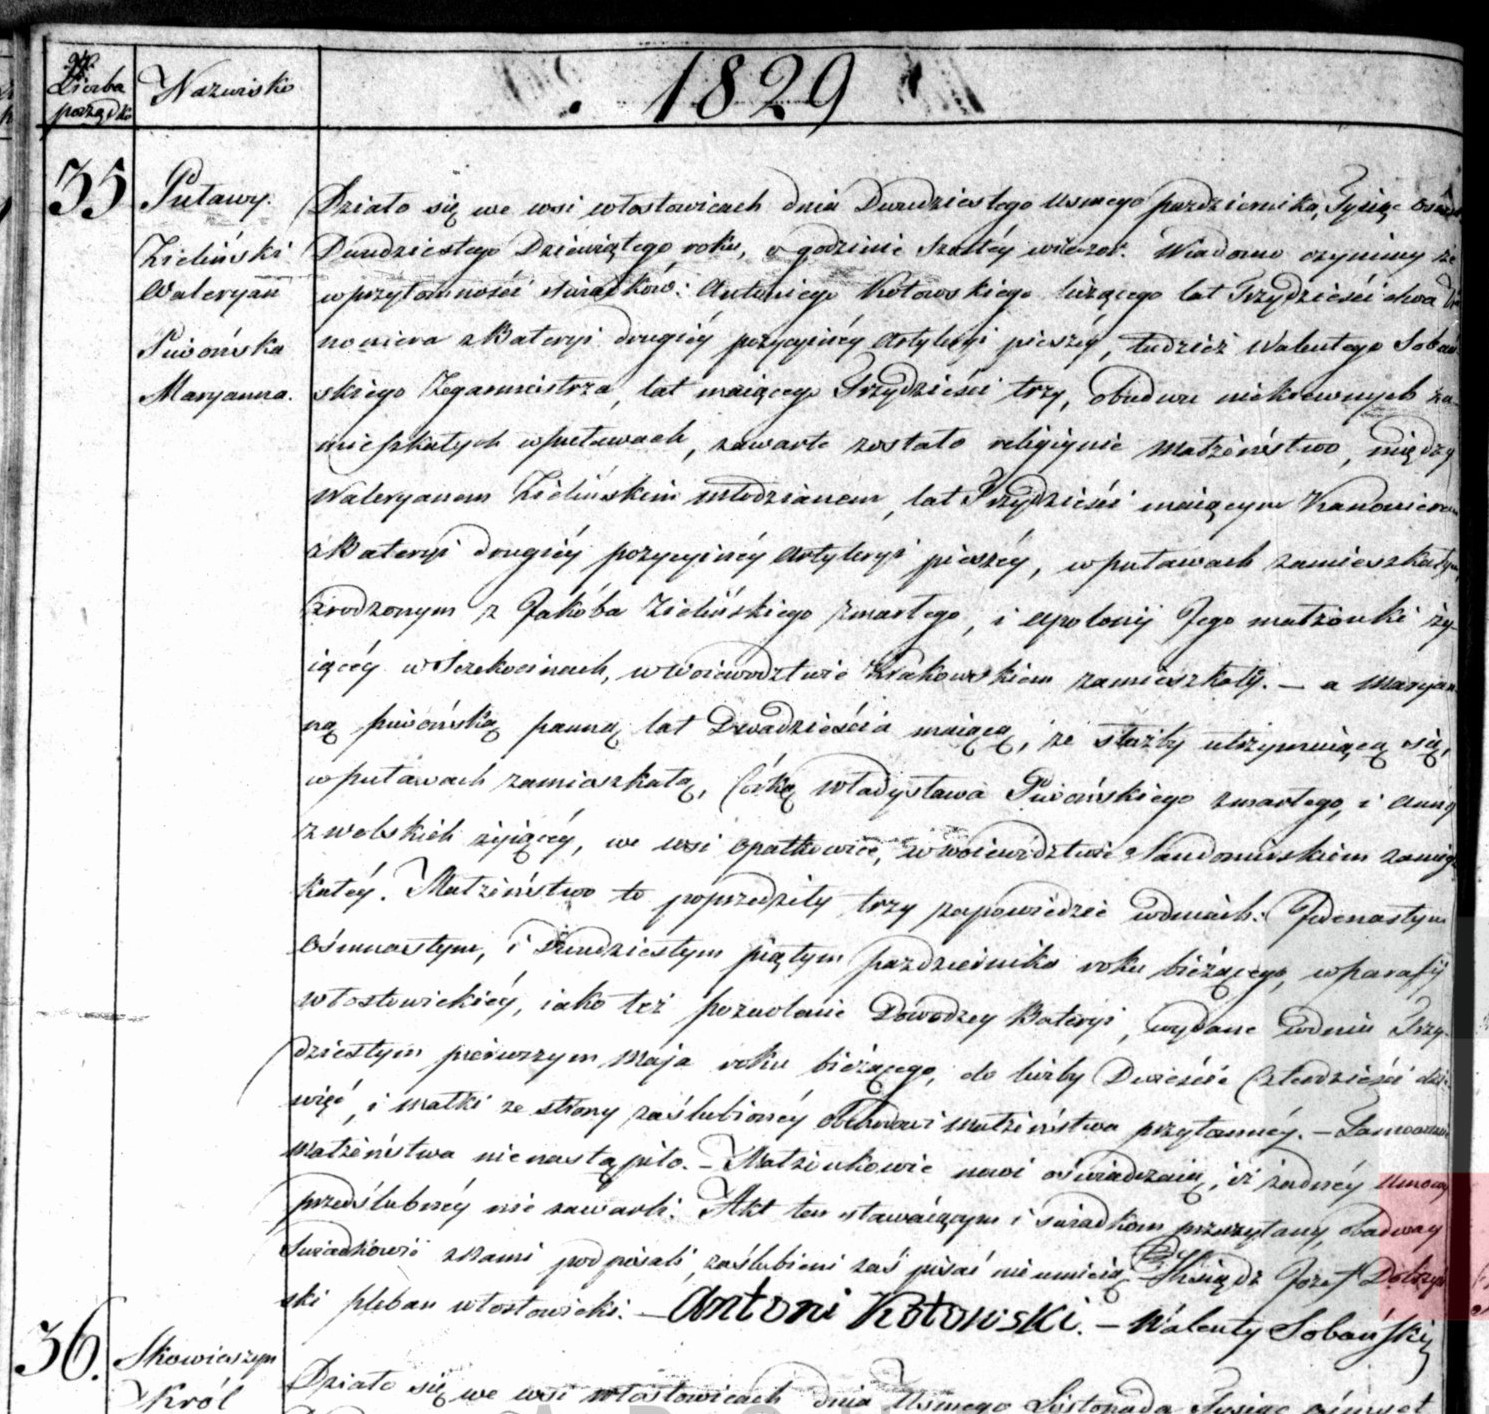 Liczba porządk
Nazwisko
1829
35
Puławy.
Zieliński
Waleryan
Piwońska
Maryanna.
Działo się we wsi Włostowicach dnia Dwudziestego usmego października, Tysiąc
Dwudziestego Dziewiątego roku, o godzinie Szostéy wieczor. Wiadomo czyniemy że
w przytomności świadków: Antoniego Kotowskiego liczącego lat Trzydzieści dwa
noniera z Bateryi drugiéy pozycyinéy Artyleryi pieszéy, tudzież Walentego Sobań
skiego Zegarmistrza, lat maiącego Trzydzieści trzy, obudwu niekrewnych za
mieszkałych w Puławach, zawarte zostało religiynie Małżeństwo, między
Waleryanem Zielińskim młodzianem, lat Trzydzieści maiącym Kanonierem
z Bateryi drugiéy pozycyinéy Artyleryi pieszéy, w Puławach zamieszkałym,
zrodzonym z Jakóba Zielińskiego zmarłego, i Apolonij Jego małżonki ży-
iącéy w Szczekocinach, w Woiewodztwie Krakowskiem zamieszkałéy. — a Maryan
ną Piwońską panną lat Dwadzieścia maiącą, ze służby utrzymuiącą się,
w Puławach zamieszkałą, Córką Władysława Piwońskiego zmarłego, i Anny
z Wolskich żyiącéy, we wsi Opatkowice, w Woiewództwie Sandomirskiem zamiesz
kałéy. Małżeństwo to poprzedziły trzy zapowiedzie w dniach: Jedenastym
Ośmnastym, i Dwudziestym piątym października roku bieżącego, w parafij
Włostowickiéy, iako też pozwolenie Dowodzcy Bateryi, wydane w dniu Trzy-
dziestym pierwszym Maja roku bieżącego, do liczby Dwieście Czterdzieści dzie
więć, i matki ze strony zaślubionéy obchodowi Małżeństwa przytomnéy. — Tamowanie
Małżeństwa nie nastąpiło. — Małżonkowie nowi oświadczaią, iż żadnéy umowy
przedślubnéy nie zawarli. Akt ten stawaiącym i świadkom przeczytany, obadway
Świadkowie z Nami podpisali, zaślubieni zaś pisać nie umieią. Xsiądz Jozef
ski pleban Włostowicki. — Antoni Kotowski. — Walenty Sobański
36.
Skowieszyn
Król
Działo się we wsi Włostowicach dnia Usmego Listopada Tysiąc ośmset